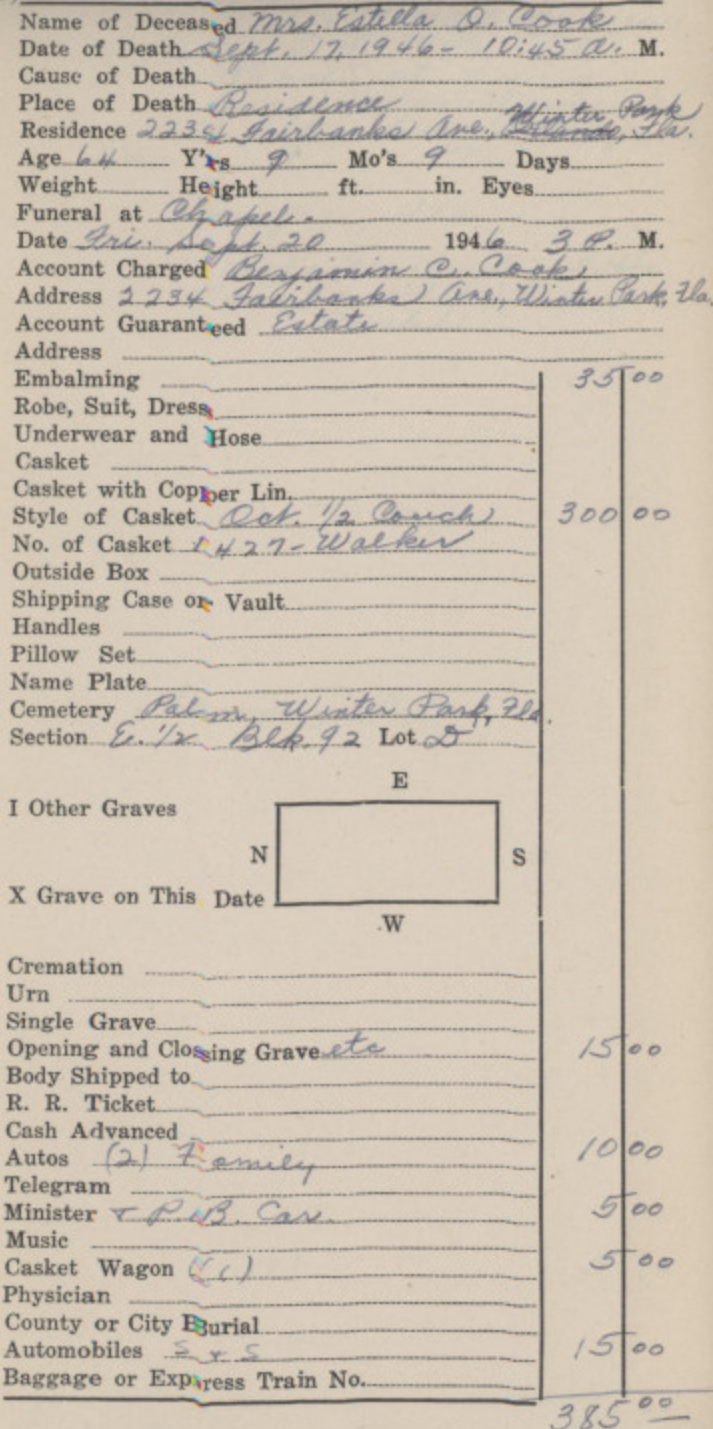 Name of Deceased Mrs. Estella O. Cook
Date of Death Sept. 17, 1946 - 10:45 a. M.
Cause of Death
Place of Death Residence
Winter Park
Residence 2234 Fairbanks Ave., Orlando, Fla.
Age 64 Y'rs 9 Mo's 9 Days
Weight Height ft. in. Eyes
Funeral at Chapel.
Date Fri. Sept. 20 1946 3 P. M.
Account Charged Benjamin C. Cook
Address 2234 Fairbanks Ave., Winter Park, Fla.
Account Guaranteed Estate
Address
Embalming 35 00
Robe, Suit, Dress
Underwear and Hose
Casket
Casket with Copper Lin.
Style of Casket Oct. 1/2 Couch 300 00
No. of Casket 427 - Walker
Outside Box
Shipping Case or Vault
Handles
Pillow Set
Name Plate
Cemetery Palm, Winter Park, Fla.
Section E. 1/2 Blk. 92 Lot D
E
I Other Graves
N S
X Grave on This Date
W
Cremation
Urn
Single Grave
Opening and Closing Grave etc 15 00
Body Shipped to
R. R. Ticket
Cash Advanced
Autos (2) Family 10 00
Telegram
Minister & P. B. Car. 5 00
Music
Casket Wagon 5 00
Physician
County or City Burial
Automobiles S & S 15 00
Baggage or Express Train No.
385 00